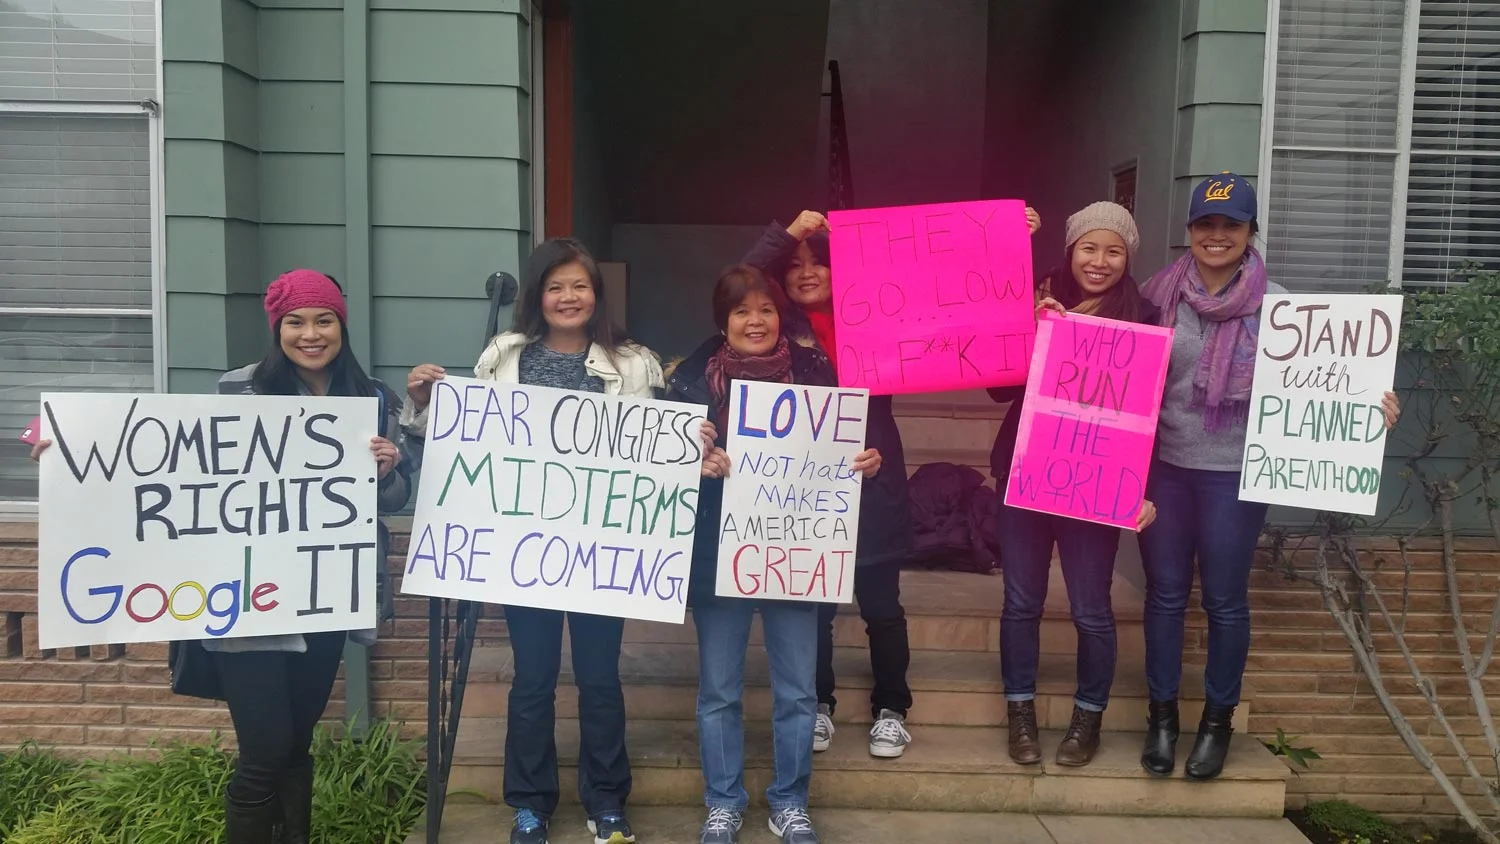 WOMEN'S
RIGHTS:
Google IT
DEAR CONGRESS
MIDTERMS
ARE COMING
LOVE
NOT hate
MAKES
AMERICA
GREAT
THEY
GO LOW
.....
OH, F**K IT
WHO
RUN
THE
WORLD
Cal
STAND
with
PLANNED
PARENTHOOD